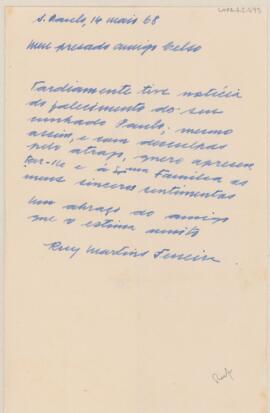 S. Paulo, 14 maio 68
Meu presado amigo Celso
Tardiamente tive noticia
do falecimento do seu
cunhado Paulo; mesmo
assim, e com desculpas
pelo atrazo, quero apresen
tar-lhe e à Exma Familia os
meus sinceros sentimentos
Um abraço do amigo
que o estima muito
Ruy Martins Ferreira